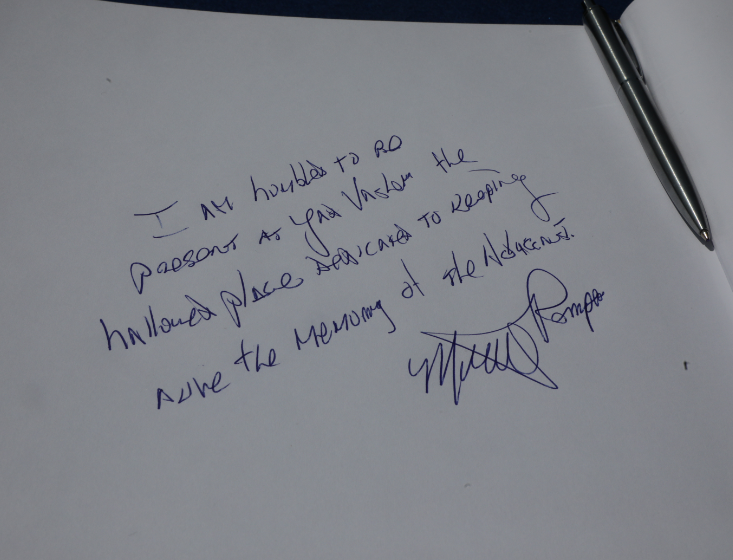 I am humbled to be
present at Yad Vashem the
hallowed place dedicated to keeping
alive the memory of the Holocaust.
Pompeo